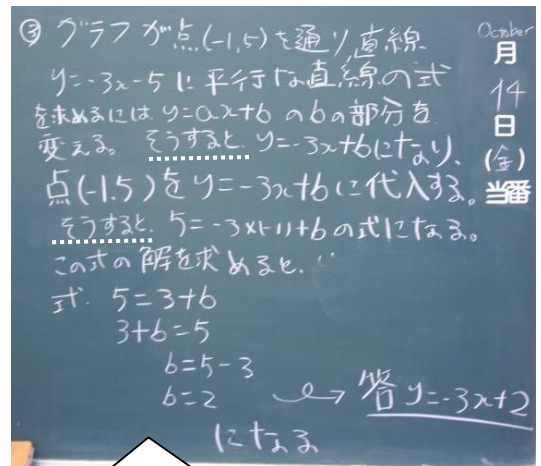 ③ グラフが点(-1,5)を通り,直線
y=-3x-5に平行な直線の式
を求めるには y=ax+bのbの部分を
変える。そうすると. y=-3x+bになり、
点(-1.5)をy=-3x+bに代入する。
そうすると. 5=-3×(-1)+bの式になる。
この式の解を求めると.
式. 5=3+b
3+b=5
b=5-3
b=2
答 y=-3x+2
になる
October
月
14
日
(金)
当番